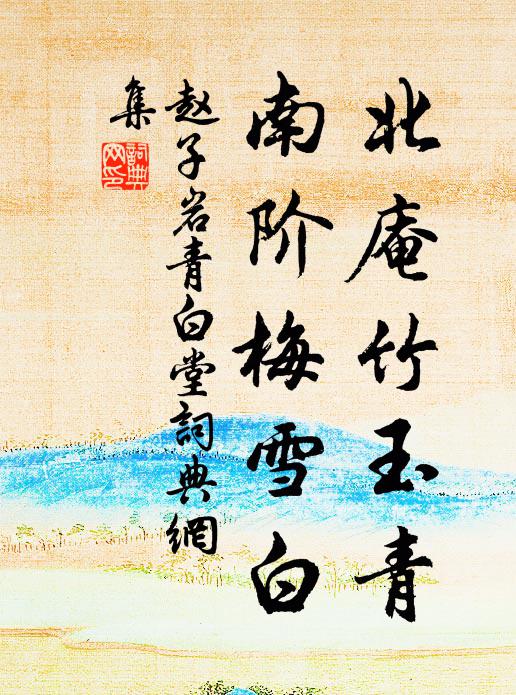 北庵竹玉青
南阶梅雪白
赵子岩青白堂詞典網
集
詞典網印